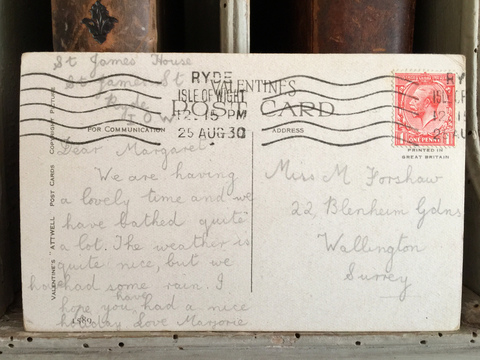 St James House
St James St
Ryde
I O W
RYDE
ISLE OF WIGHT
12 15 PM
25 AUG 30
VALENTINES
POST CARD
FOR COMMUNICATION
ADDRESS
Dear Margaret
We are having
a lovely time and we
have bathed quite
a lot. The weather is
quite nice, but we
have had some rain. I
hope you have had a nice
holiday Love Marjorie
Miss M Forshaw
22 Blenheim Gdns
Wallington
Surrey
PRINTED IN
GREAT BRITAIN
VALENTINE'S "ATTWELL" POST CARDS COPYRIGHT PICTURE